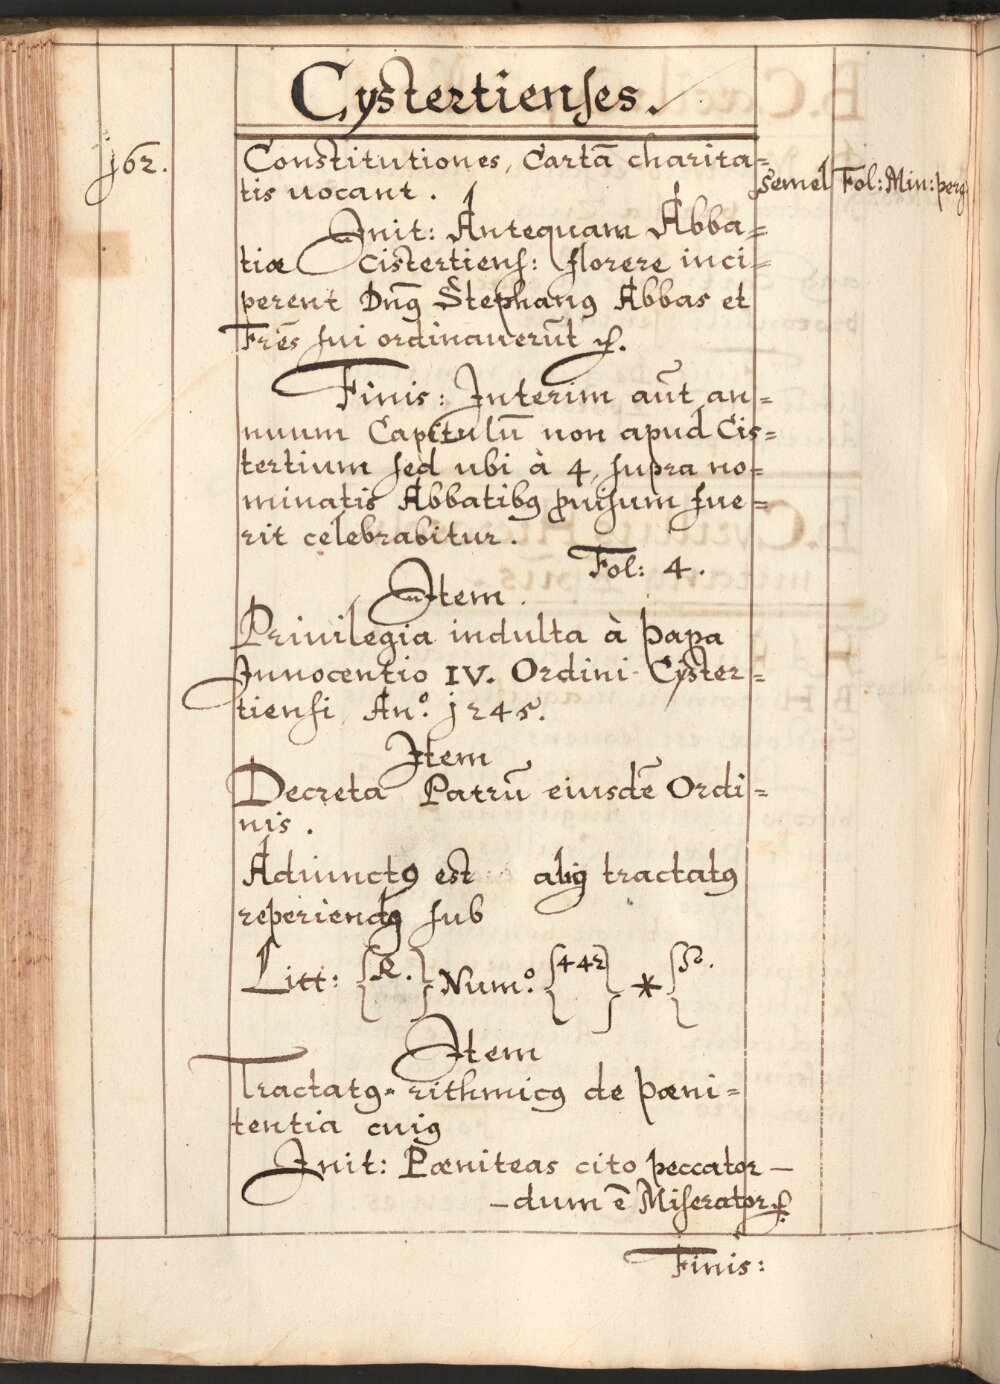 Cystertienses.
j62.
Constitutiones, Cartã charita=
tis uocant.
semel
Fol: Min: perg
Init: Antequam Abba=
tiæ Cistertiens: florere inci=
perent Dn9 Stephan9 Abbas et
Frẽs sui ordinauerũt
Finis: Interim aũt an=
nuum Capitulũ non apud Cis=
tertium sed ubi à 4, supra no=
minatis Abbatib9 ꝓuisum fue=
rit celebrabitur.
Fol: 4.
Item.
Priuilegia indulta à papa
Innocentio IV. Ordini Cyster=
tiensi An.º j245.
Item
Decreta Patrũ eiusdẽ Ordi=
nis.
Adiunct9 est ali9 tractat9
reperiend9 sub
Litt: {R.} Num.º {442} * {
Item
Tractat9 rithmic9 de pæni=
tentia cui9
Init: Pæniteas cito peccator —
— dum ẽ Miserator
Finis: